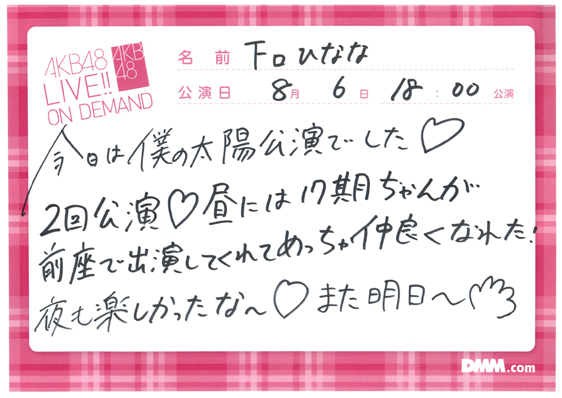 AKB48
LIVE!!
ON DEMAND
AKB
48
名前 下口ひなな
公演日 8月 6日 18:00 公演
今日は僕の太陽公演でした♡
2回公演♡昼には17期ちゃんが
前座で出演してくれてめっちゃ仲良くなれた!
夜も楽しかったな〜♡また明日〜
DMM.com